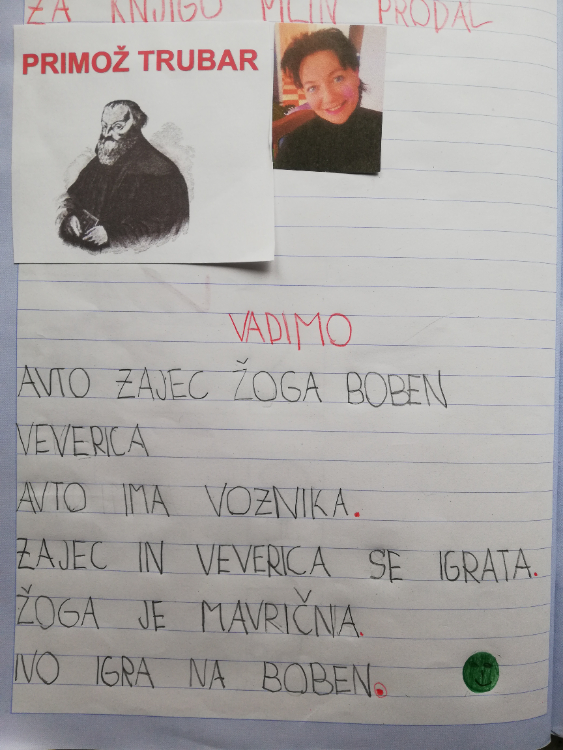 ZA KNJIGO MILIN PRODAL
PRIMOŽ TRUBAR
VADIMO
AVTO ZAJEC ŽOGA BOBEN
VEVERICA
AVTO IMA VOZNIKA.
ZAJEC IN VEVERICA SE IGRATA.
ŽOGA JE MAVRIČNA.
IVO IGRA NA BOBEN.